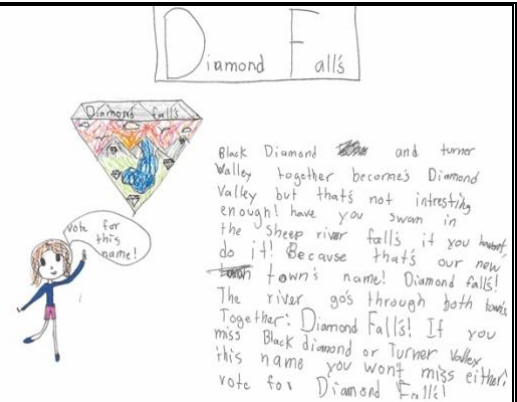 Diamond Fall's
Diamond falls
vote for
this
name!
Black Diamond and turner
Valley together becomes Diamond
Valley but that's not intresting
enough! have you swan in
the sheep river falls if you havent,
do it! Because that's our new
town's name! Diamond falls!
The river go's through both towns
Together: Diamond Fall's! If you
miss Black diamond or Turner Valley
this name you won't miss either!
vote for Diamond Fall's!